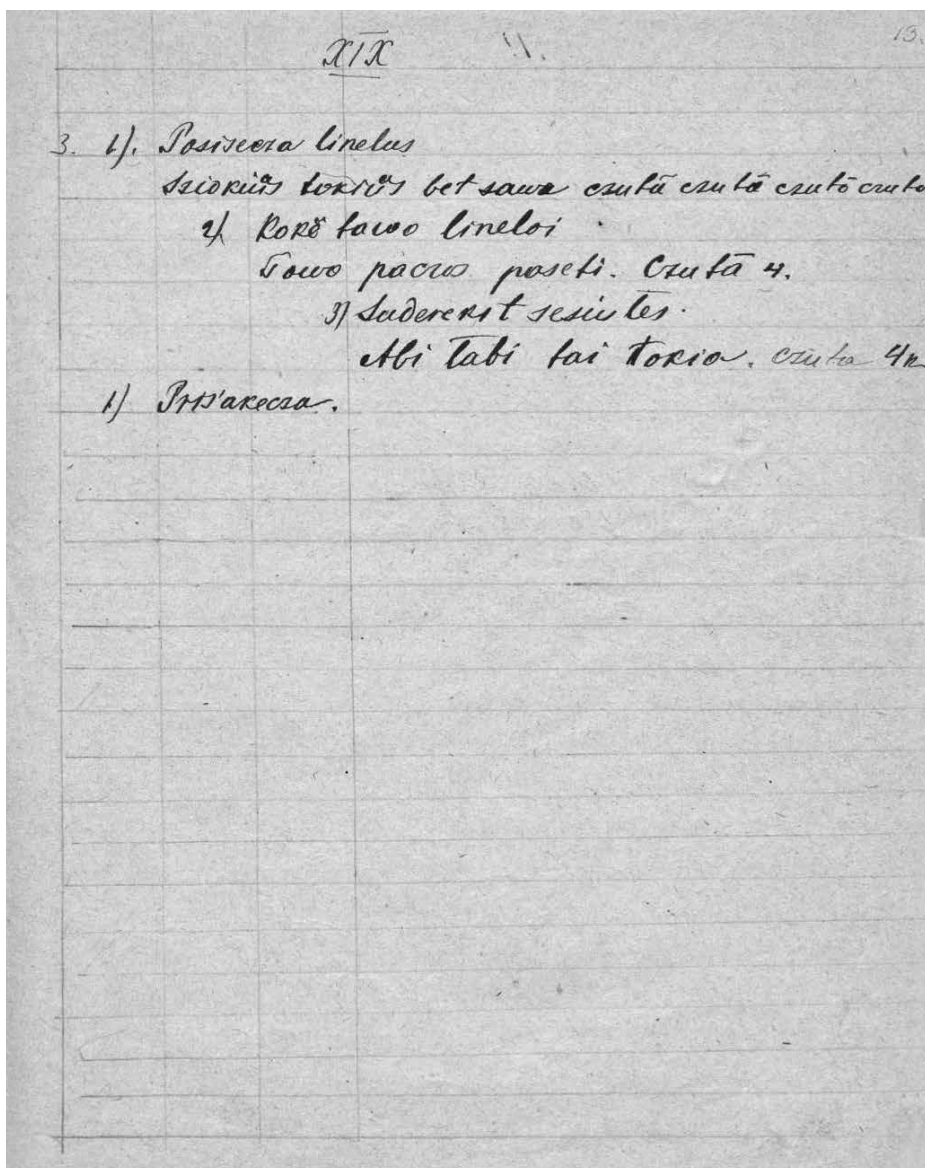 XIX 13.
3. 1). Posisecza linelus
Sziokiūs tokiūs bet sawa czutā czutā czutō czuto
2) Kokē tawo lineloi
Towo paczos paseti. Czutā 4.
3) Suderenst sesiutes.
Abi tabi tai tokia. czuta 4
1) Prisakecza.